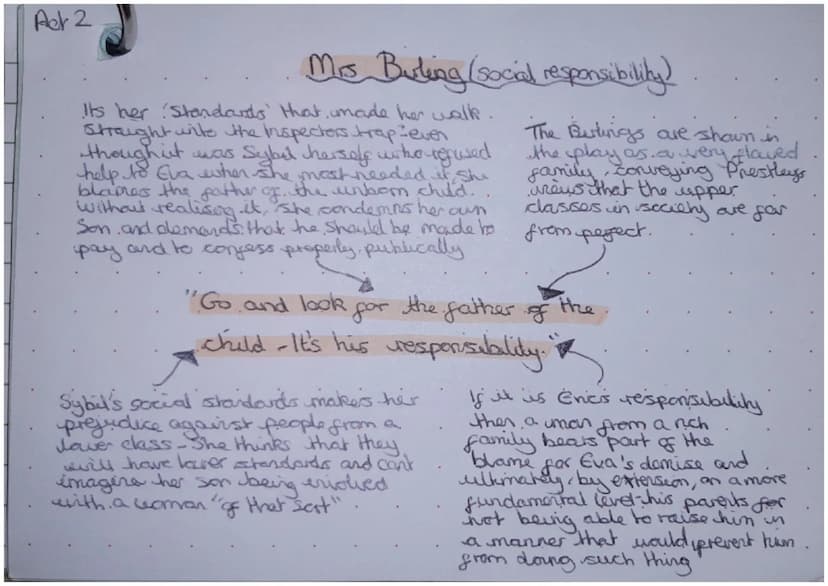 Act 2
Mrs Birling (social responsibility)
Its her 'Standards' that made her walk
straight into the Inspectors trap-even
though it was Sybil herself who refused
help to Eva when she most needed it, she
blaimes the father of the unborn child.
Without realising it, she condemns her own
Son and demands that he should be made to
pay and to confess properly, publically
The Birlings are shown in
the play as a very flawed
family, conveying Priestleys
views that the upper
classes in society are far
from perfect.
"Go and look for the father of the
child - It's his responsibility."
Sybil's social standards makes her
prejudice against people from a
lower class - She thinks that they
will have lower standards and can't
imagine her son being involved
with a woman "of that sort"
If it is Erics responsibility
then a man from a rich
family bears part of the
blame for Eva's demise and
ultimately, by extension, on a more
fundamental level-his parents for
not being able to raise him in
a manner that would prevent him
from doing such thing